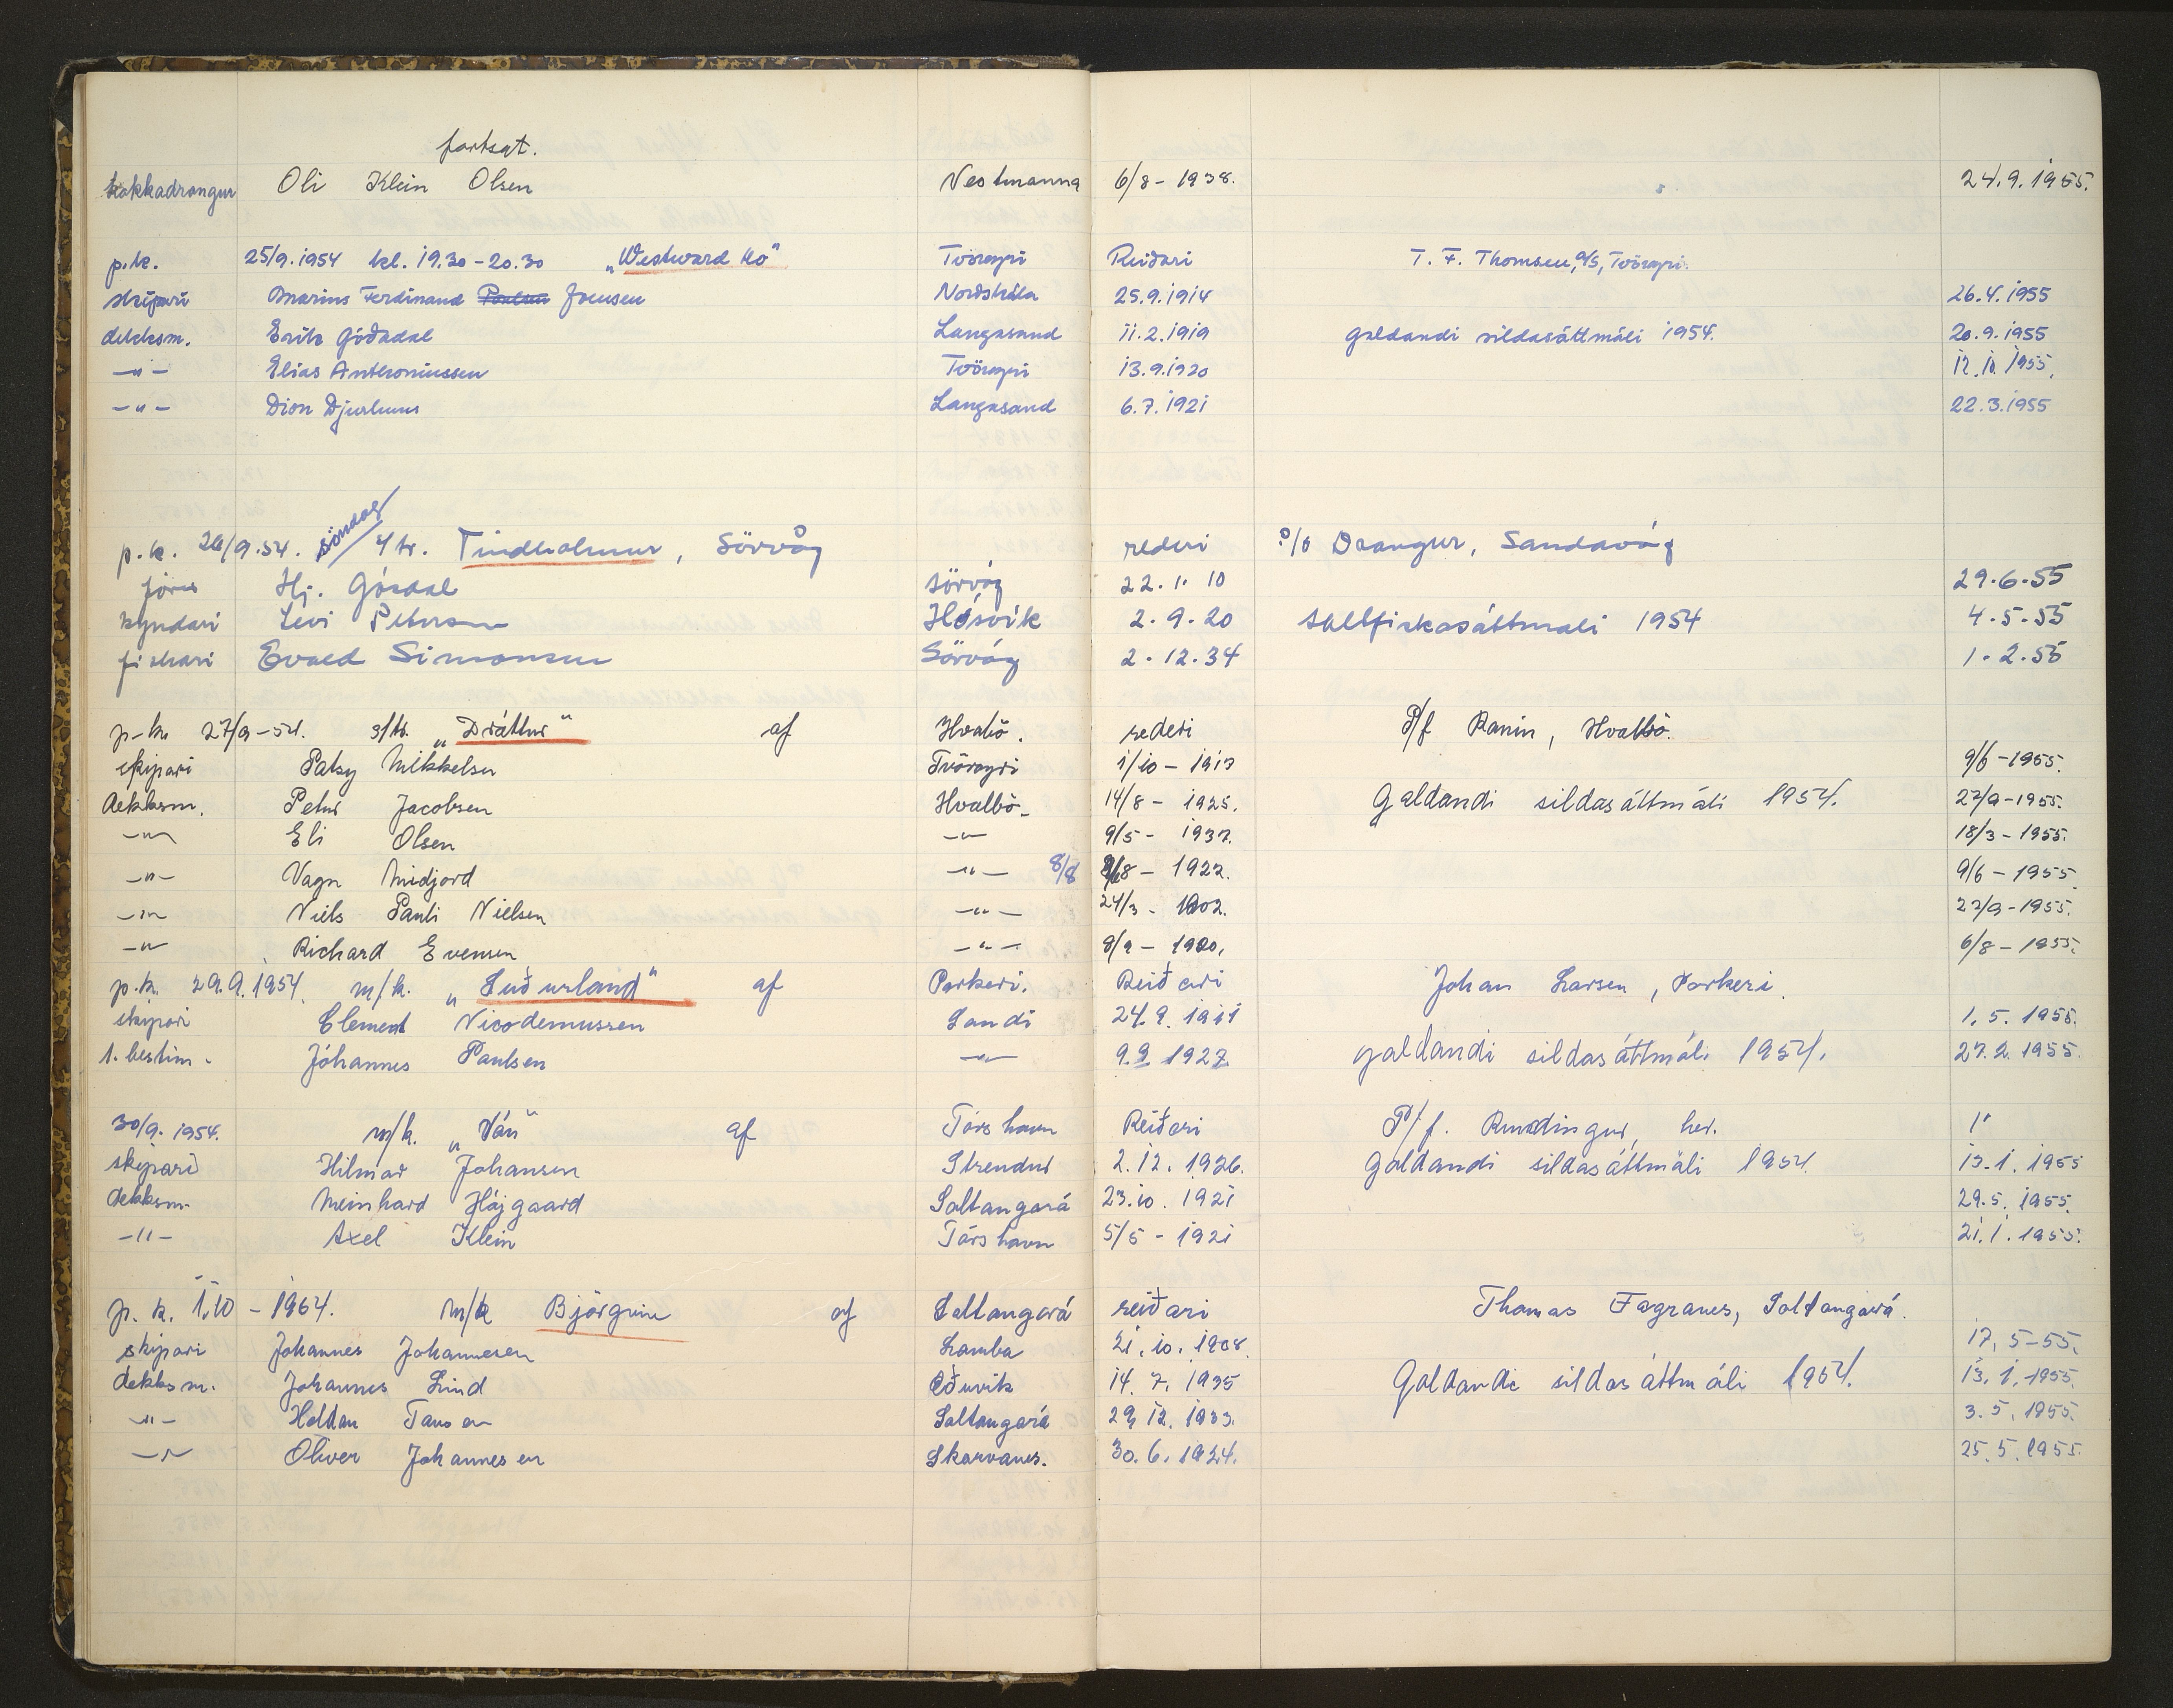 fortsat.
kokkadrongur Oli Klein Olsen Vestmanna 6/8 - 1938. 24.9.1955.
p.k. 25/9.1954 kl. 19.30-20.30 „Westward Ho" Tvöroyri Reiðari T. F. Thomsen, A/S, Tvöroyri.
skipari Marius Ferdinand Poulsen Joensen Norðskála 25.9.1914 26.4.1955
dekksm. Erik Góðadal Langasand 11.2.1919 galdandi sildasáttmáli 1954. 20.9.1955
-"- Elias Anthoniussen Tvöroyri 13.9.1920 12.10.1955.
-"- Dion Djurhuus Langasand 6.7.1921 22.3.1955
söndag
p.k. 26/9.54. s/tr. Tindholmur, Sörvág rederi P/f Drangur, Sandavág
förur Hj. Góðdal Sörvág 22.1.10 29.6.55
kyndari Levi Petersen Hósvík 2.9.20 saltfiskasáttmali 1954 4.5.55
fiskari Evald Simonsen Sörvág 2.12.34 1.2.55
p-k. 27/9-54. s/tr. „Dráttur" af Hvalbö. rederi P/f Ranin, Hvalbö.
skipari Patsy Mikkelsen Tvöroyri 1/10 - 1917 9/6-1955.
dekksm. Petur Jacobsen Hvalbö. 14/8 - 1925. Galdandi sildasáttmáli 1954. 27/9-1955.
-"- Eli Olsen -"- 9/5 - 1937. 18/3-1955.
-"- Vagn Midjord -"- 8/8 8/8 - 1922. 9/6-1955.
-"- Niels Pauli Nielsen -"- 24/3 - 1902. 27/9-1955.
-"- Richard Evensen -"- 8/9 - 1920. 6/8-1955.
p.k. 29.9.1954. m/k. „Suðurland" af Porkeri. Reiðari Johan Larsen, Porkeri.
skipari Clement Nicodemussen Sandi 24.9.1911 1.5.1955.
1. bestim. Jóhannes Paulsen -"- 9.9.1927 galdandi sildasáttmáli 1954. 27.2.1955.
30/9.1954. m/k. „Ván" af Tórshavn Reiðari P/f. Rundingur, her. 1"
skipari Hilmar Johansen Strendur 2.12.1926. galdandi sildasáttmáli 1954. 13.1.1955
dekksm. Meinhard Højgaard Saltangará 23.10.1921 29.5.1955.
-"- Axel Klein Tórshavn 5/5 - 1921 21.1.1955.
p.k. 1.10 - 1954. m/k Björgvin af Saltangará reiðari Thomas Fagranes, Saltangará.
skipari Johannes Johannesen Lamba 21.10.1908. 17.5-55.
dekksm. Johannes Lind Eðuvik 14.7.1935 Galdandi sildasáttmáli 1954. 13.1.-1955.
-"- Haldan Tausen Saltangará 29.12.1933. 3.5.1955.
-"- Oliver Johannesen Skarvanes. 30.6.1924. 25.5.1955.